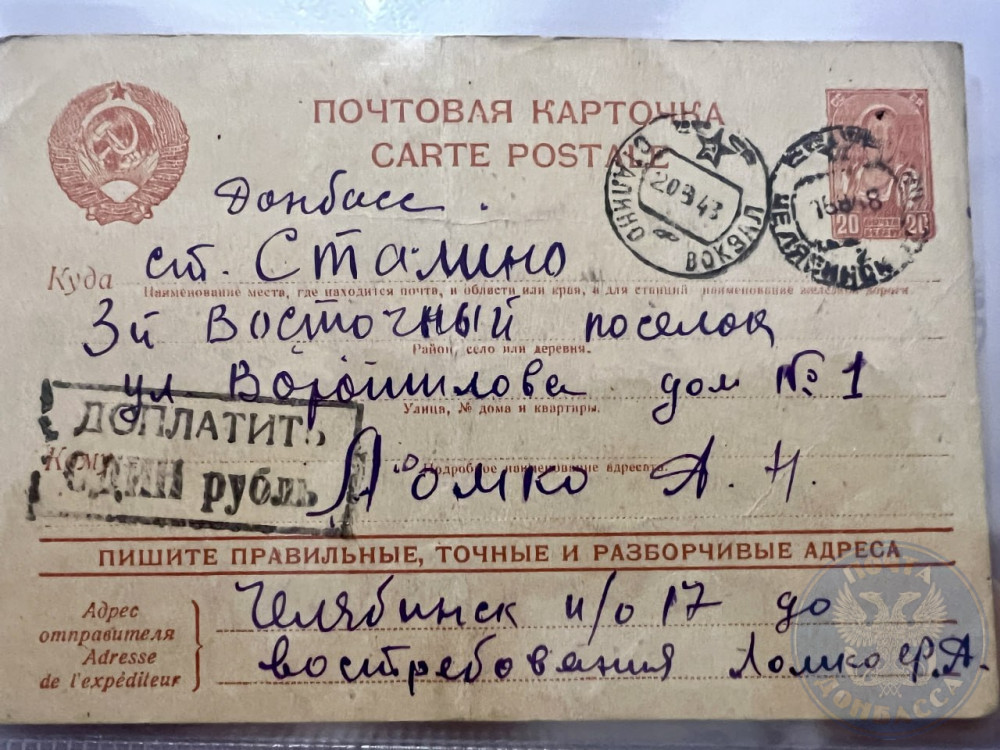 ПОЧТОВАЯ КАРТОЧКА
CARTE POSTALE
Донбасс.
Куда ст. Сталино
Наименование места, где находится почта, и области или края, а для станций наименование железной дороги
3й Восточный поселок
Район, село или деревня.
ул Ворошилова дом № 1
Улица, № дома и квартиры.
Кому Ломко А. Н.
Подробное наименование адресата.
ДОПЛАТИТЬ
ОДИН рубль
СТАЛИНО ВОКЗАЛ
20 9 43
ЧЕЛЯБИНСК
20 ПОЧТА 20
ПИШИТЕ ПРАВИЛЬНЫЕ, ТОЧНЫЕ И РАЗБОРЧИВЫЕ АДРЕСА
Адрес
отправителя
Adresse
de l'expéditeur
Челябинск п/о 17 до
востребования Ломко
ПОЧТА
ДОНБАССА